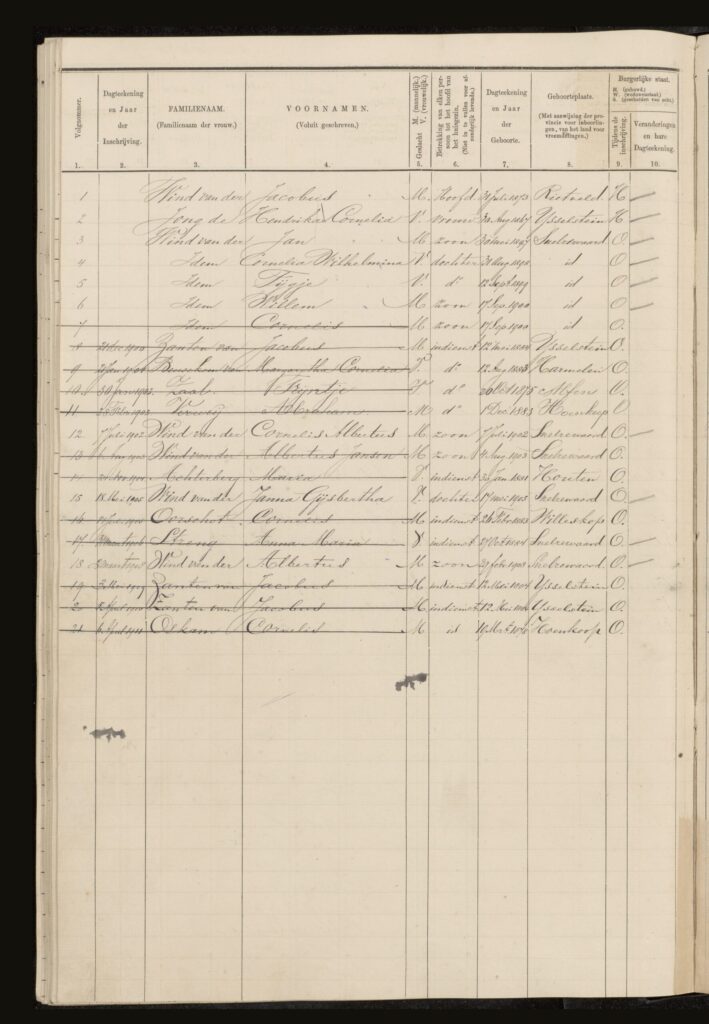 Volgnummer. Dagteekening en Jaar der Inschrijving. FAMILIENAAM. (Familienaam der vrouw.) VOORNAMEN. (Voluit geschreven.) Geslacht M. (mannelijk.) V. (vrouwelijk.) Betrekking van elken persoon tot het hoofd van het huisgezin. (Niet in te vullen voor afzonderlijk levende.) Dagteekening en Jaar der Geboorte. Geboorteplaats. (Met aanwijzing der provincie voor inboorlingen, van het land voor vreemdelingen.) Burgerlijke staat. H. (gehuwd.) W. (weduwenstaat.) S. (gescheiden van echt.) Tijdens de inschrijving. Veranderingen en hare Dagteekening.
1. 2. 3. 4. 5. 6. 7. 8. 9. 10.
1 Wind van der Jacobus M. Hoofd Juli 1873 Rietveld H
2 Jong de Hendrika Cornelia V. vrouw Aug 1867 Ysselstein H
3 Wind van der Jan M zoon 1897 Snelrewaard O
4 Idem Cornelia Wilhelmina V. dochter Aug 1898 id O
5 Idem Tijgje V. d° 12 Sept 1899 id O
6 Idem Willem M zoon 17 Sep 1900 id O
7 Idem Cornelis M zoon 17 Sep 1900 id O.
8 Zanten van Jacobus M indienst 12 Mei 1884 Ysselstein O.
9 van Margaretha Cornelia V. d° 1883 Harmelen O
10 Zaal Fijntje V d° Oct 1875 Alfen O.
11 Verweij Abraham M d° 1 Dec 1883 Hoenkoop O
12 7 Juli 1902 Wind van der Cornelis Albertus M zoon 7 Juli 1902 Snelrewaard O
13 Wind van der Albertus Jansen M zoon 4 Aug 1903 Snelrewaard O.
14 Achterberg Maria V. indienst Jan 1881 Houten O
15 1905 Wind van der Janna Gijsbertha V. dochter 1905 Snelrewaard O
16 Oorschot Cornelis M indienst Febr 1883 Willeskop O.
17 Streng Anna Maria V indienst Oct 1884 Snelrewaard O.
18 Wind van der Albertus M zoon Febr 1908 Snelrewaard O.
19 Zanten van Jacobus M indienst 12 Mei 1884 Ysselstein O.
20 Zanten van Jacobus M indienst 12 Mei Ysselstein O.
21 6 April 1911 Oskam Cornelis M id Hoenkoop O.